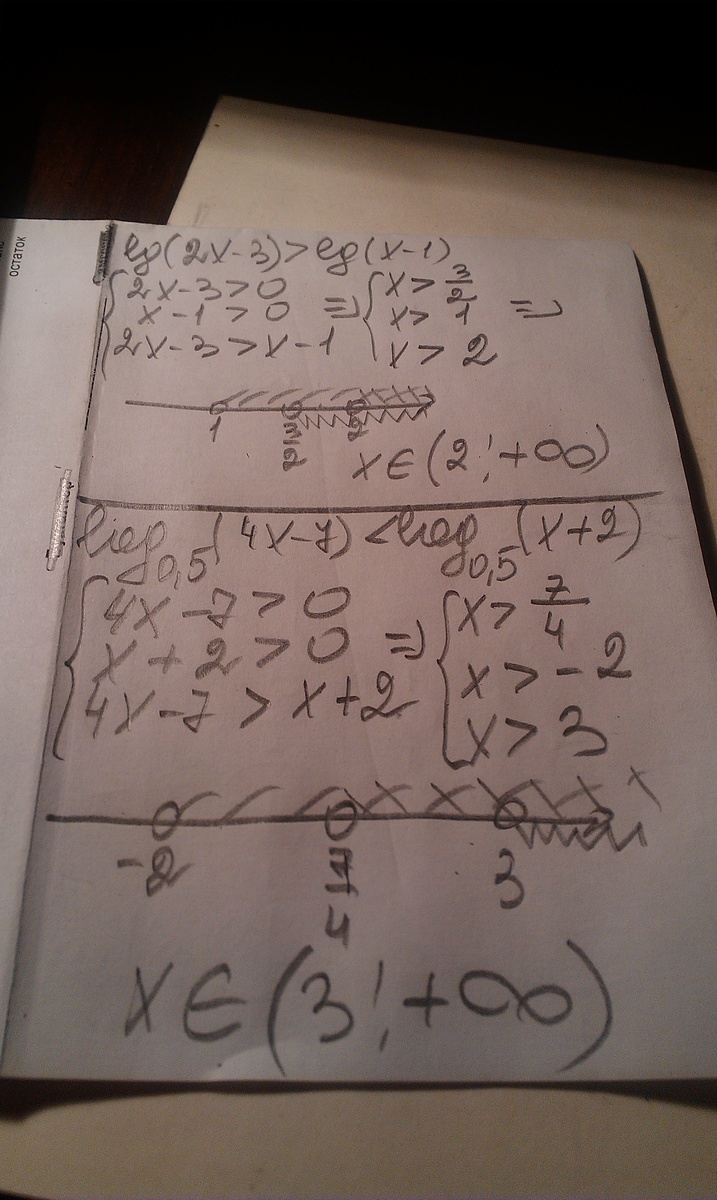 остаток
lg(2x-3)>lg(x-1)
{2x-3>0 ⇒ {x>3/2 ⇒
x-1>0 x>1
2x-3>x-1 x>2
1 3/2 2
x∈(2;+∞)
log0,5(4x-7)<log0,5(x+2)
{4x-7>0 ⇒ {x>7/4
x+2>0 x>-2
4x-7>x+2 x>3
-2 7/4 3
x∈(3;+∞)